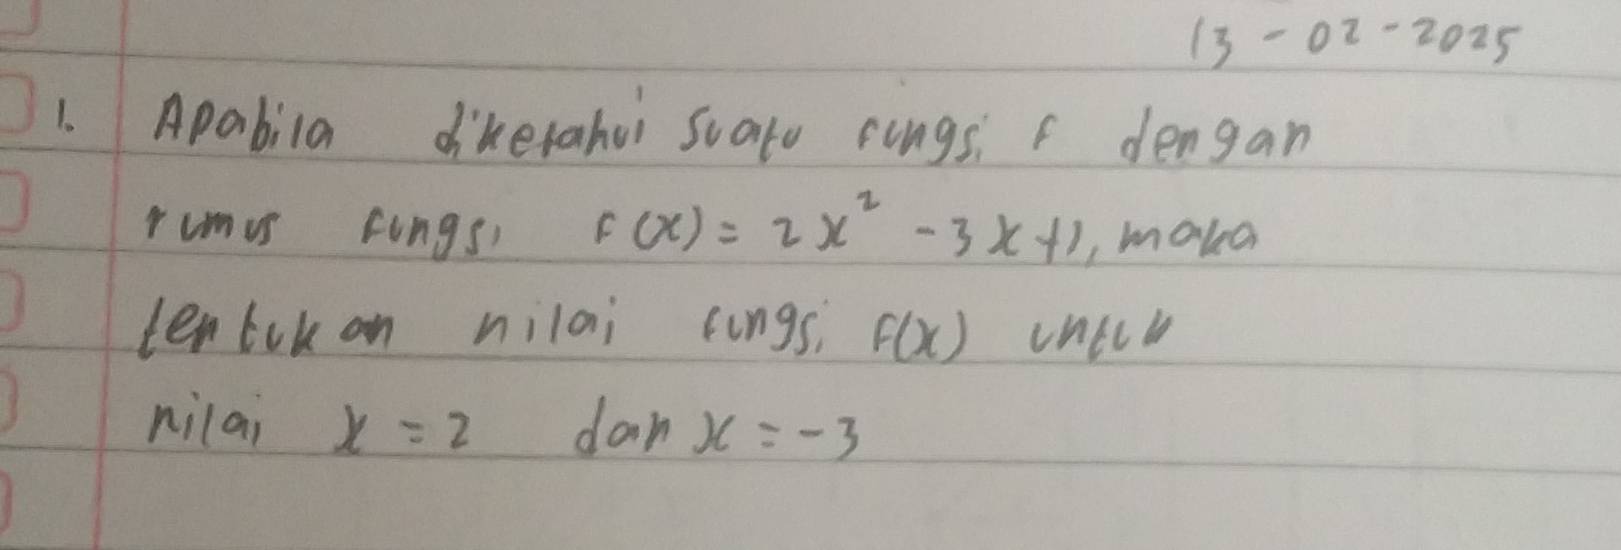 13-02-2025
1. Apabila diketahui suatu fungsi f dengan
rumus fungsi f(x) = 2x² - 3x+1, maka
tentukan nilai fungsi f(x) untuk
nilai x = 2 dan x = -3